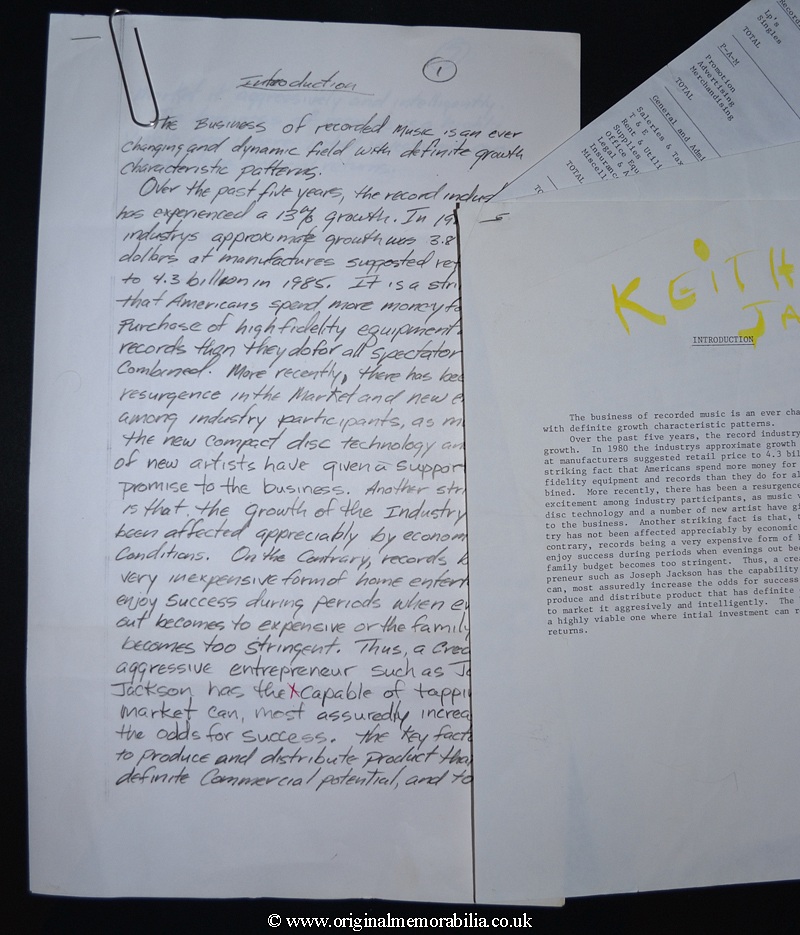 Introduction
1
The Business of recorded Music is an ever
changing and dynamic field with definite growth
characteristic patterns.
Over the past five years, the record indust
has experienced a 13% growth. In 19
industrys approximate growth was 3.8
dollars at manufactures suggested ret
to 4.3 billion in 1985. It is a stri
that Americans spend more money fo
Purchase of high fidelity equipment
records than they do for all spectator
Combined. More recently, there has bee
resurgence in the Market and new e
among industry participants, as m
the new compact disc technology an
of new artists have given a support
promise to the business. Another stri
is that, the growth of the Industry
been affected appreciably by econom
Conditions. On the Contrary, records b
very inexpensive form of home entert
enjoy success during periods when ev
out becomes to expensive or the family
becomes too stringent. Thus, a Crea
aggressive entrepreneur such as Jo
Jackson has the x capable of tappi
market can, most assuredly increa
the odds for success. The key fact
to produce and distribute product tha
definite Commercial potential, and to
Record
Lp's
Singles
TOTAL
P-A-M
Promotion
Advertising
Merchandising
TOTAL
General and Admi
Saleries & Tax
T & E
Rent & Utili
Supplies
Office Equ
Legal & A
Insuranc
Miscell
TOTAL
TO
KEITH
JA
INTRODUCTION
The business of recorded music is an ever cha
with definite growth characteristic patterns.
Over the past five years, the record industry
growth. In 1980 the industrys approximate growth
at manufacturers suggested retail price to 4.3 bil
striking fact that Americans spend more money for
fidelity equipment and records than they do for al
bined. More recently, there has been a resurgence
excitement among industry participants, as music v
disc technology and a number of new artist have gi
to the business. Another striking fact is that, t
try has not been affected appreciably by economic
contrary, records being a very expensive form of h
enjoy success during periods when evenings out bec
family budget becomes too stringent. Thus, a crea
preneur such as Joseph Jackson has the capability
can, most assuredly increase the odds for success
produce and distribute product that has definite
to market it aggresively and intelligently. The
a highly viable one where intial investment can r
returns.
© www.originalmemorabilia.co.uk